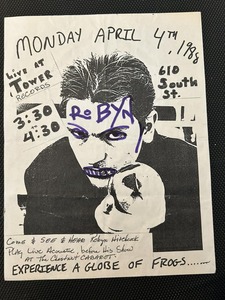 MONDAY APRIL 4TH, 1988
Live AT
TOWER
RECORDS
610
South
St.
3:30
4:30
RoBYN
Come & See & Hear Robyn Hitchcock
Play Live Acoustic, before His Show
AT The Chestnut CABARET.
EXPERIENCE A GLOBE OF FROGS.......